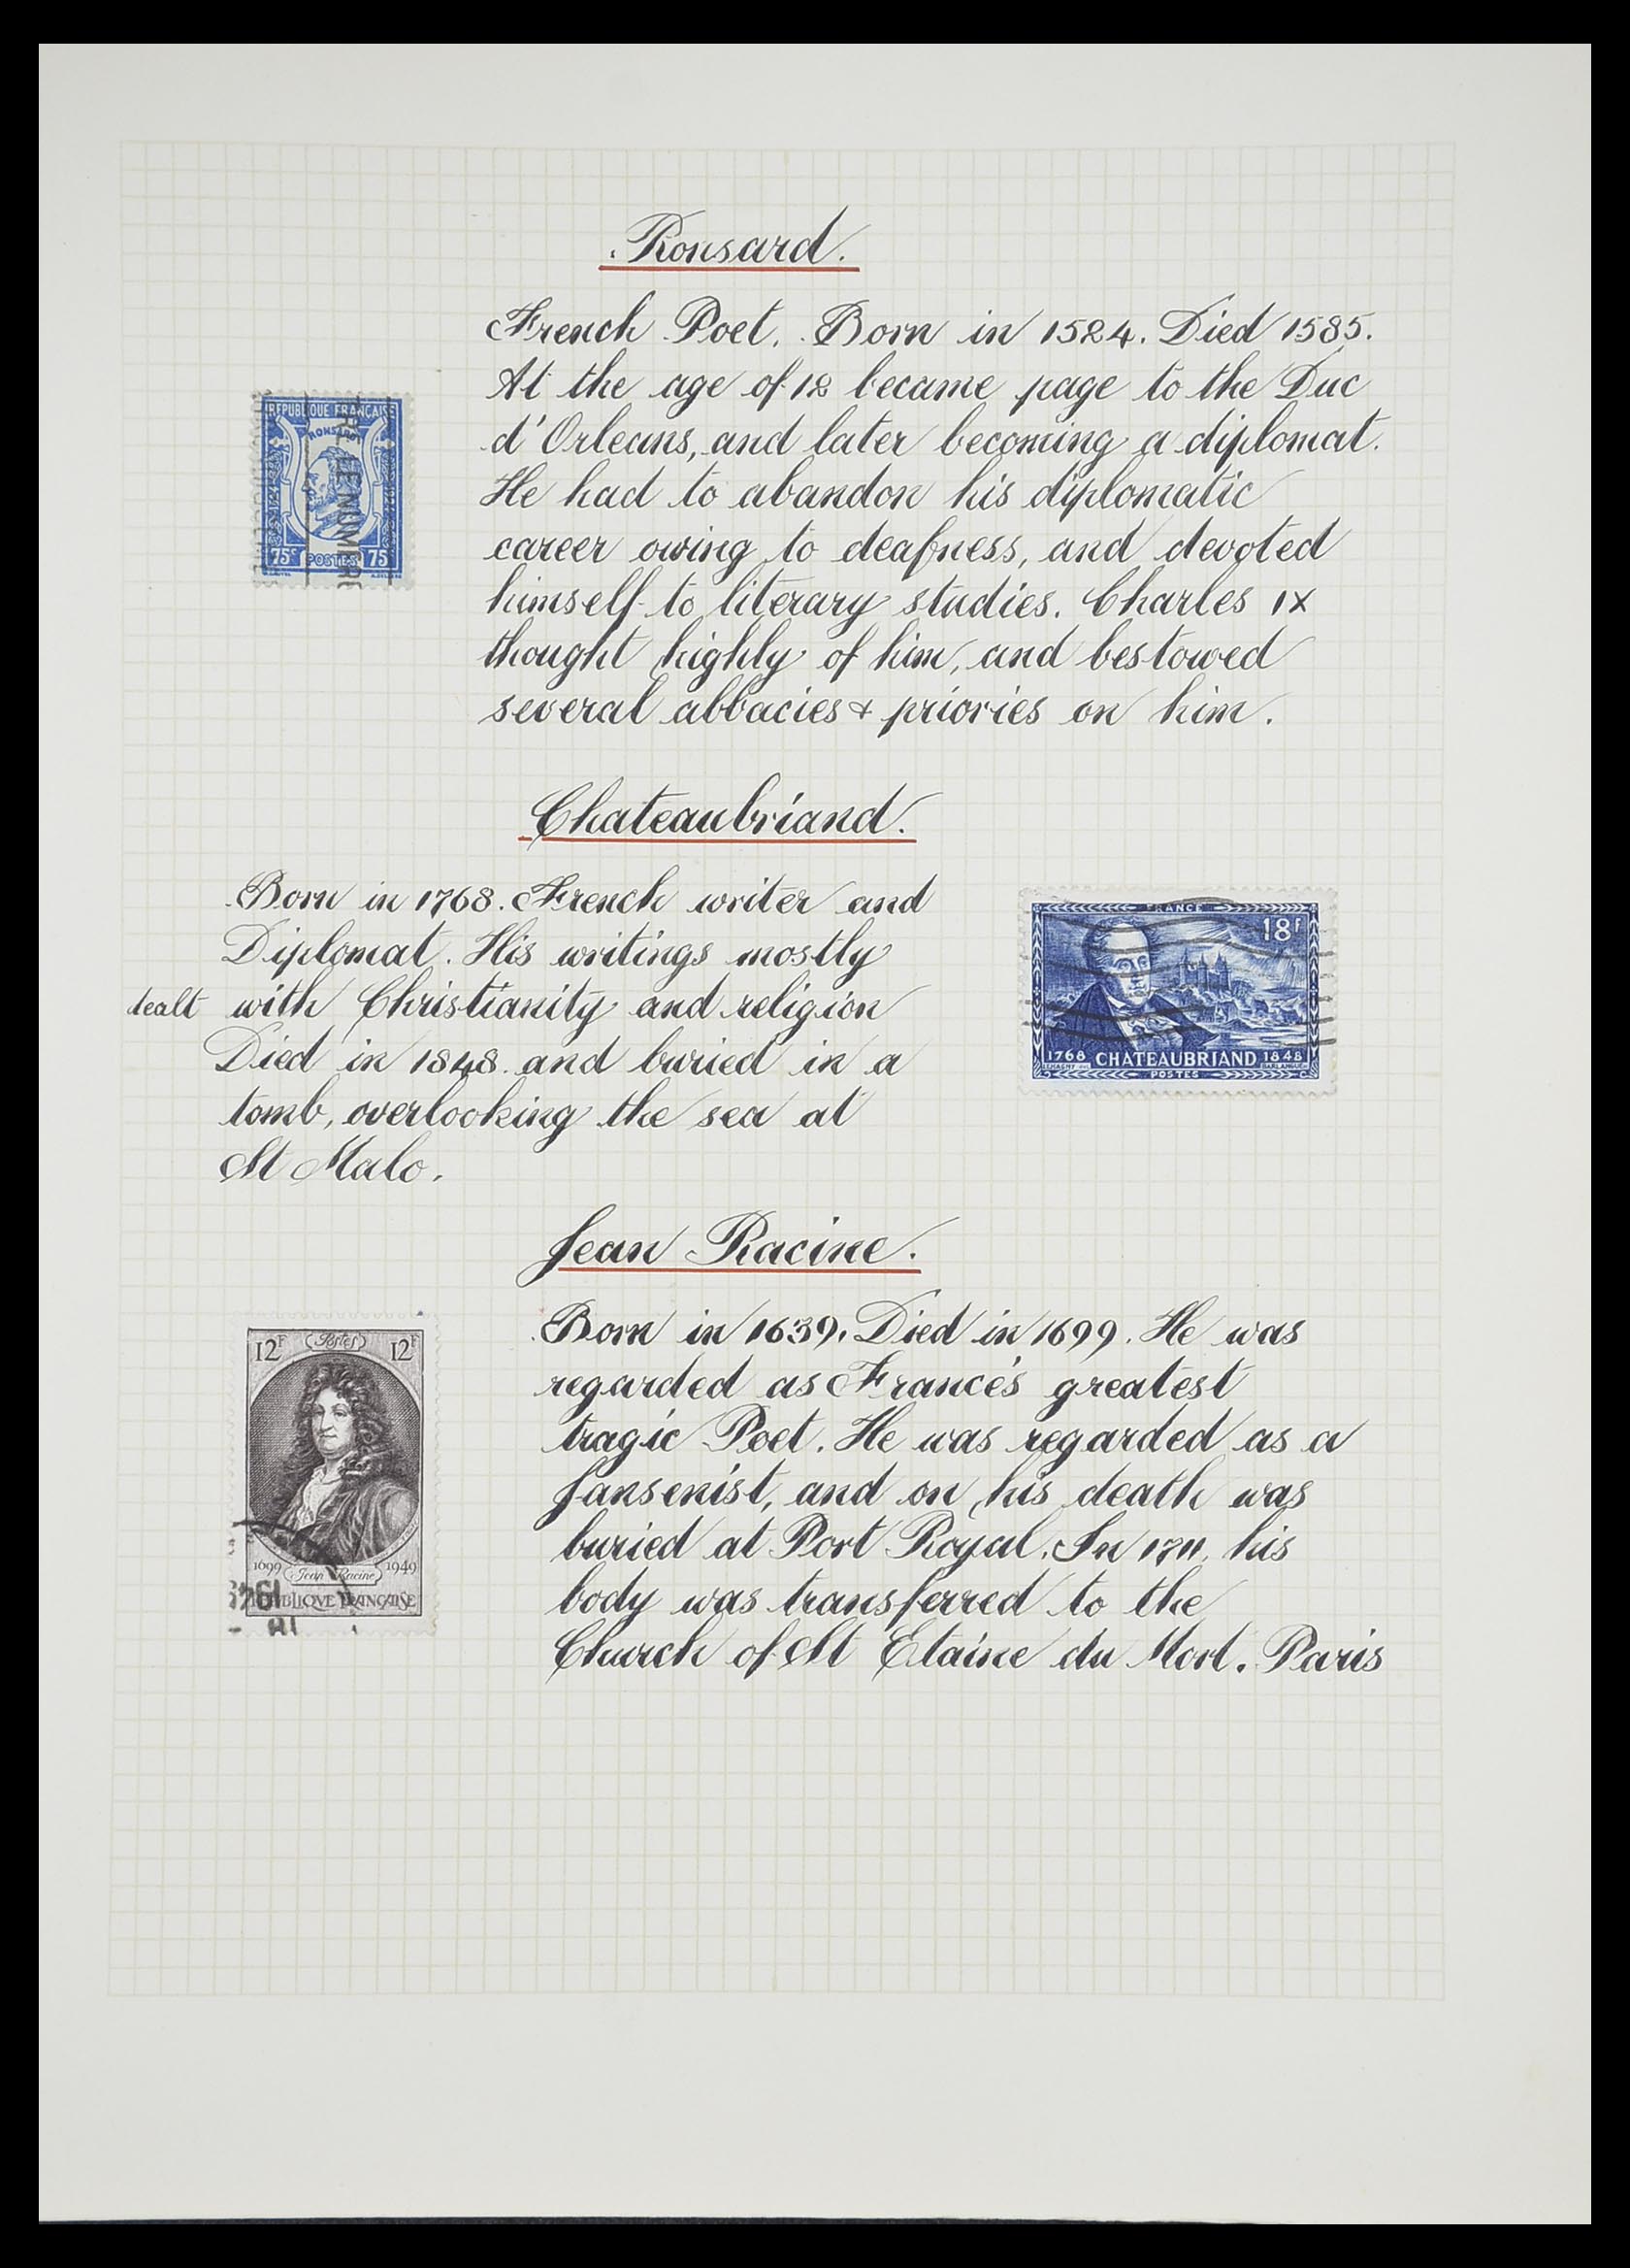 Ronsard.
French Poet. Born in 1524. Died 1585.
At the age of 12 became page to the Duc
d'Orleans, and later becoming a diplomat.
He had to abandon his diplomatic
career owing to deafness, and devoted
himself to literary studies. Charles IX
thought highly of him, and bestowed
several abbacies & priories on him.
REPUBLIQUE FRANCAISE
RONSARD
75c POSTES 75c
Chateaubriand.
Born in 1768. French writer and
Diplomat. His writings mostly
dealt with Christianity and religion
Died in 1848. and buried in a
tomb, overlooking the sea at
St Malo.
FRANCE
18f
1768 CHATEAUBRIAND 1848
POSTES
Jean Racine.
Born in 1639. Died in 1699. He was
regarded as France's greatest
tragic Poet. He was regarded as a
Jansenist, and on his death was
buried at Port Royal. In 1711, his
body was transferred to the
Church of St Etaine du Mort. Paris
12F Postes 12F
1699 Jean Racine 1949
REPUBLIQVE FRANÇAISE